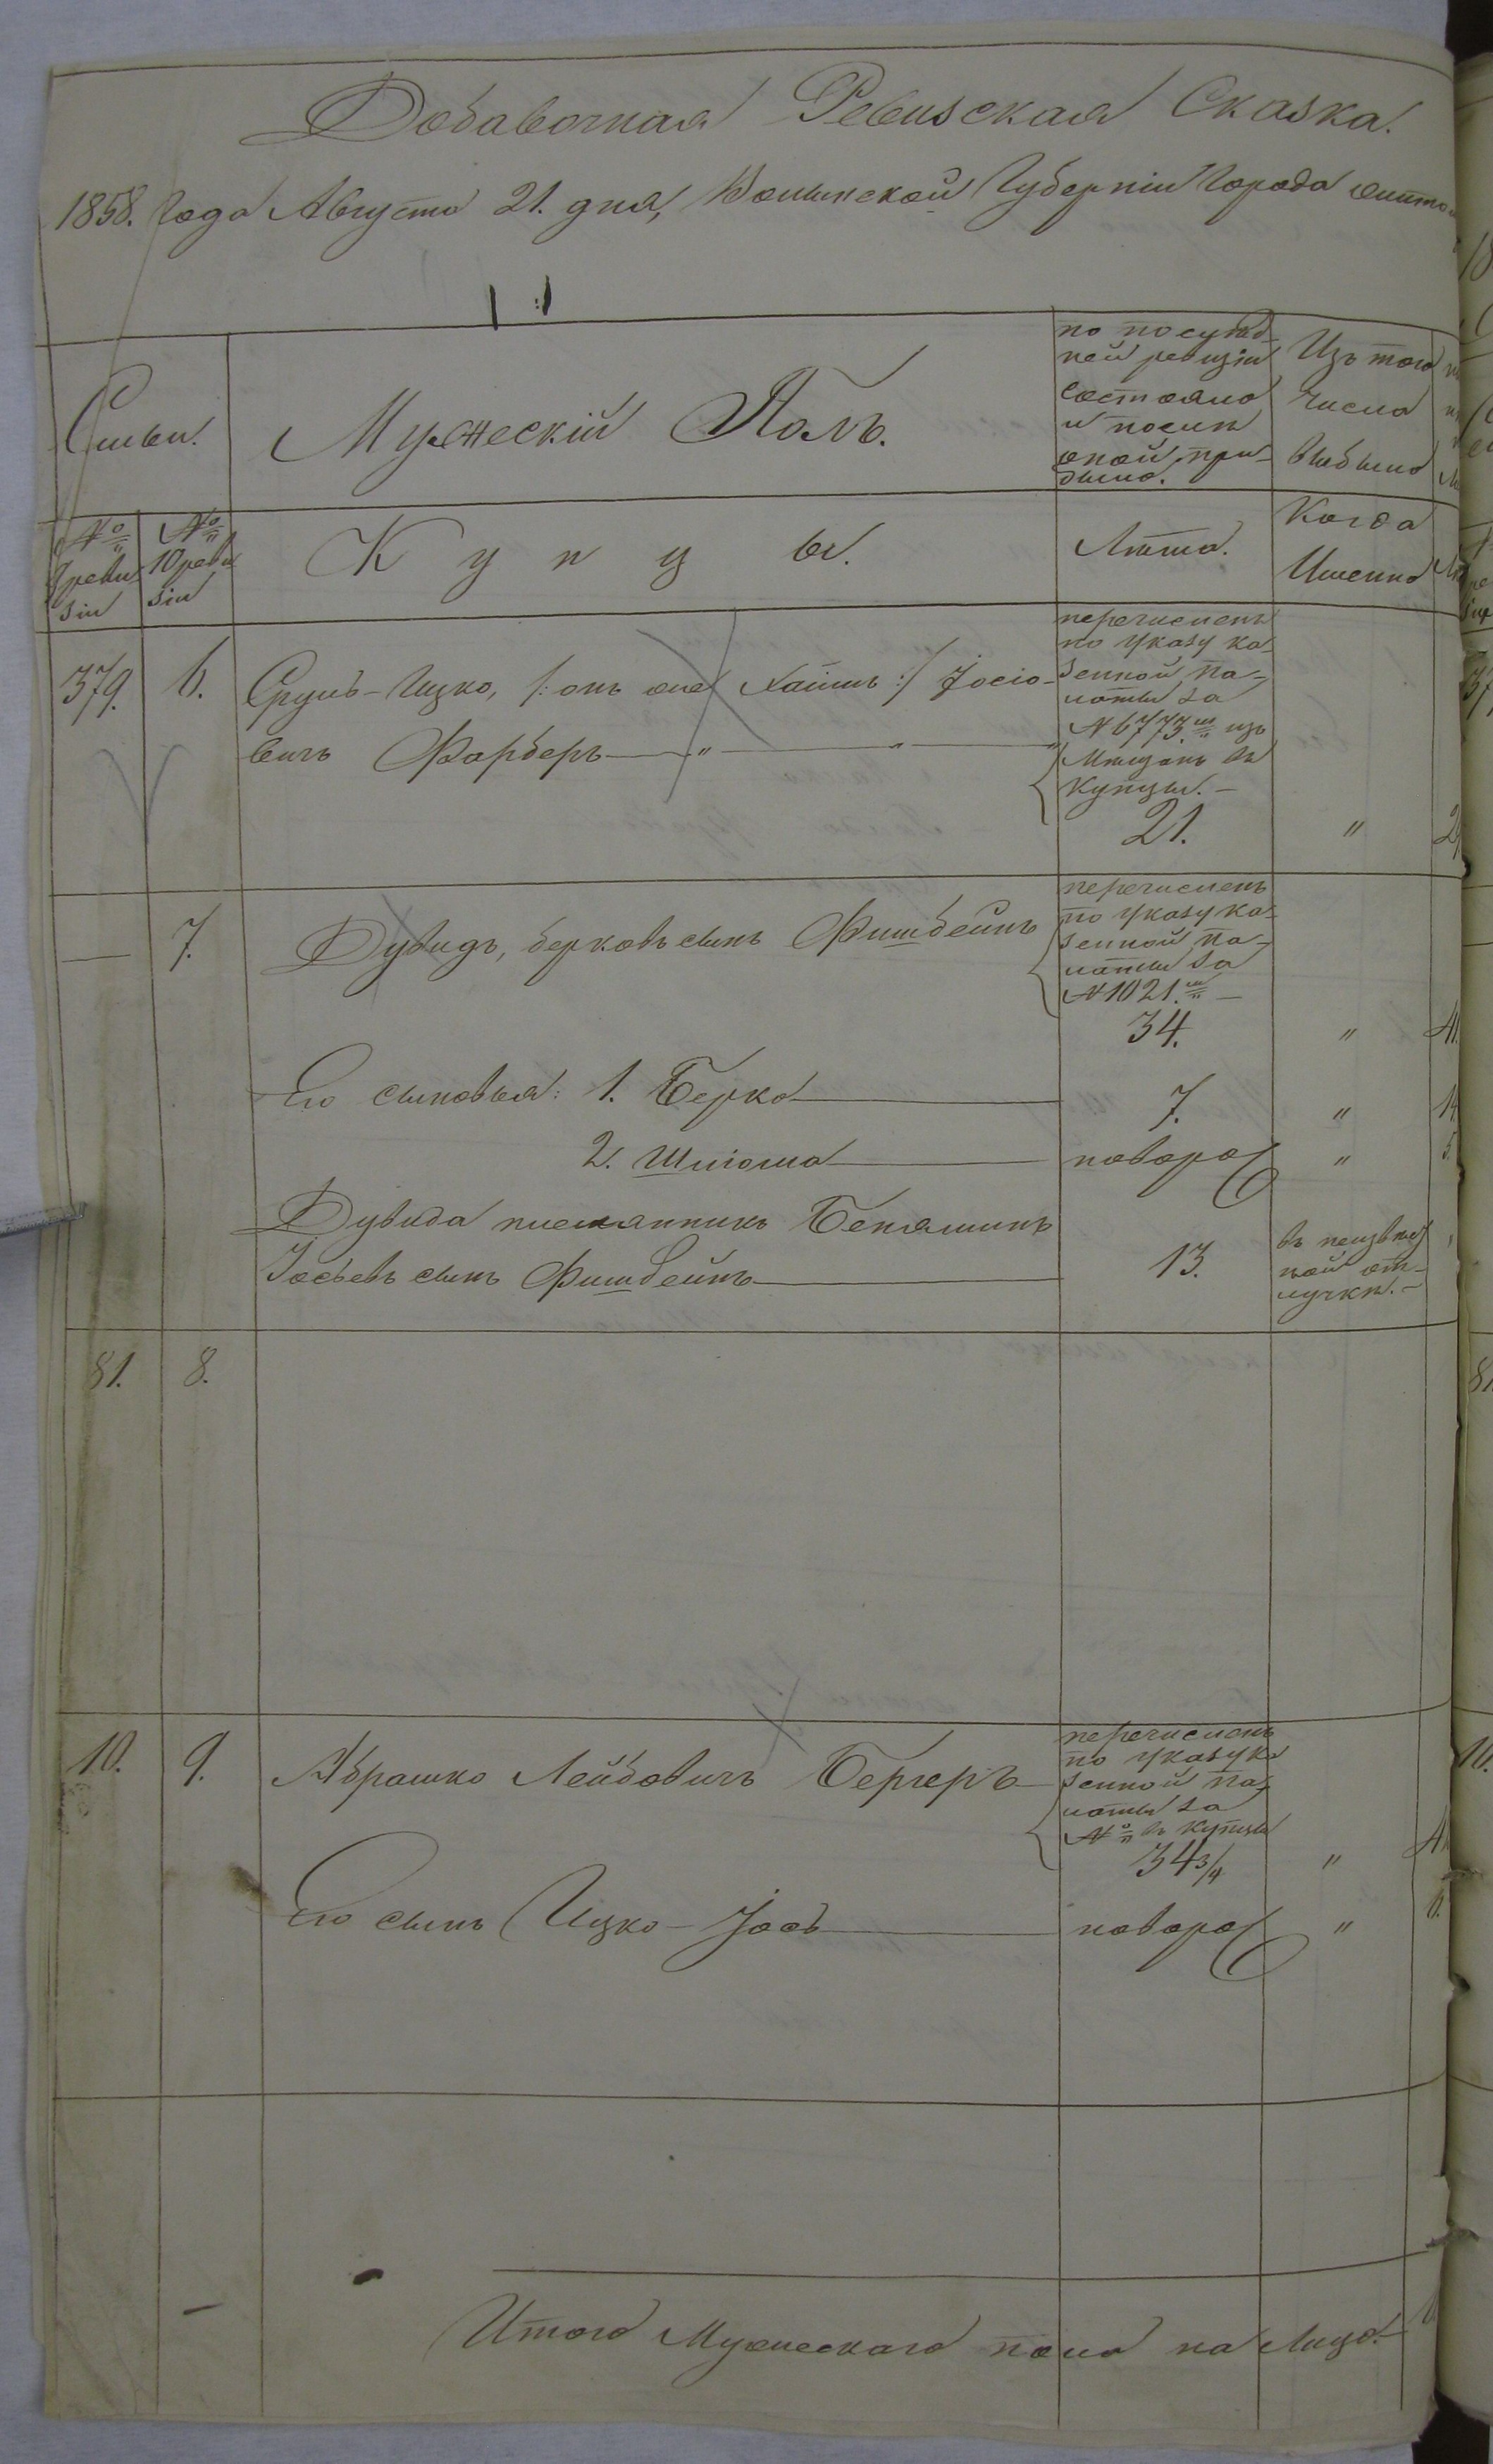 Добавочная Ревизская Сказка.
1858. Года Августа 21. дня, Волынской Губерніи Города Жито
Семьи.
Мужескій Полъ.
по послѣд-
ней ревизіи
состояло
и послѣ
оной при-
было.
Изъ того
числа
выбыло
№ 9 реви
зіи
№ 10 реви
зіи
Купцы.
Лѣта.
Когда
Именно
379. 6. Сруль-Ицко, /: онъ же Хаимъ :/ Іосіо-
вичъ Фарберъ
перечисленъ
по Указу Ка-
зенной Па-
латы за
№ 6773.мъ изъ
Мѣщанъ въ
Купцы. —
21. "
— 7. Дувидъ, Берковъ сынъ Фишбейнъ
перечисленъ
по Указу Ка-
зенной Па-
латы за
№ 1021.мъ —
34. "
Его сыновья: 1. Берко 7. "
2. Шлiома новоро "
Дувида племянникъ Беняминъ
Іосьевъ сынъ Фишбейнъ 13.
въ неизвѣс
ной от-
лучкѣ. —
81. 8.
10. 9. Абрашко Лейбовичъ Бергеръ
перечисленъ
по Указу Ка
зенной Па-
латы за
№ въ Купцы
34 3/4 "
Его сынъ Ицко-Іось новоро "
Итого Мужескаго пола на Лицо.